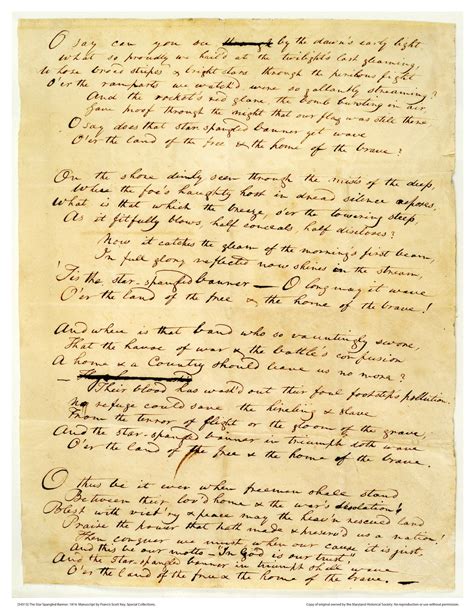 O say can you see by the dawn's early light
What so proudly we hail'd at the twilight's last gleaming,
Whose broad stripes & bright stars through the perilous fight
O'er the ramparts we watch'd, were so gallantly streaming?
And the rocket's red glare, the bomb bursting in air,
Gave proof through the night that our flag was still there
O say does that star-spangled banner yet wave
O'er the land of the free & the home of the brave?
On the shore dimly seen through the mists of the deep,
Where the foe's haughty host in dread silence reposes,
What is that which the breeze, o'er the towering steep,
As it fitfully blows, half conceals, half discloses?
Now it catches the gleam of the morning's first beam,
In full glory reflected now shines in the stream,
'Tis the star-spangled banner — O long may it wave
O'er the land of the free & the home of the brave!
And where is that band who so vauntingly swore,
That the havoc of war & the battle's confusion
A home & a Country should leave us no more?
Their blood has wash'd out their foul footsteps pollution.
No refuge could save the hireling & slave
From the terror of flight or the gloom of the grave,
And the star-spangled banner in triumph doth wave
O'er the land of the free & the home of the brave.
O thus be it ever when freemen shall stand
Between their lov'd home & the war's desolation!
Blest with vict'ry & peace may the heav'n rescued land
Praise the power that hath made & preserv'd us a nation!
Then conquer we must, when our cause it is just,
And this be our motto - In God is our trust,
And the star-spangled banner in triumph shall wave
O'er the land of the free & the home of the brave.
The Star Spangled Banner. 1814. Manuscript by Francis Scott Key. Special Collections.
Copy of original owned by the Maryland Historical Society. No reproduction or use without permission.